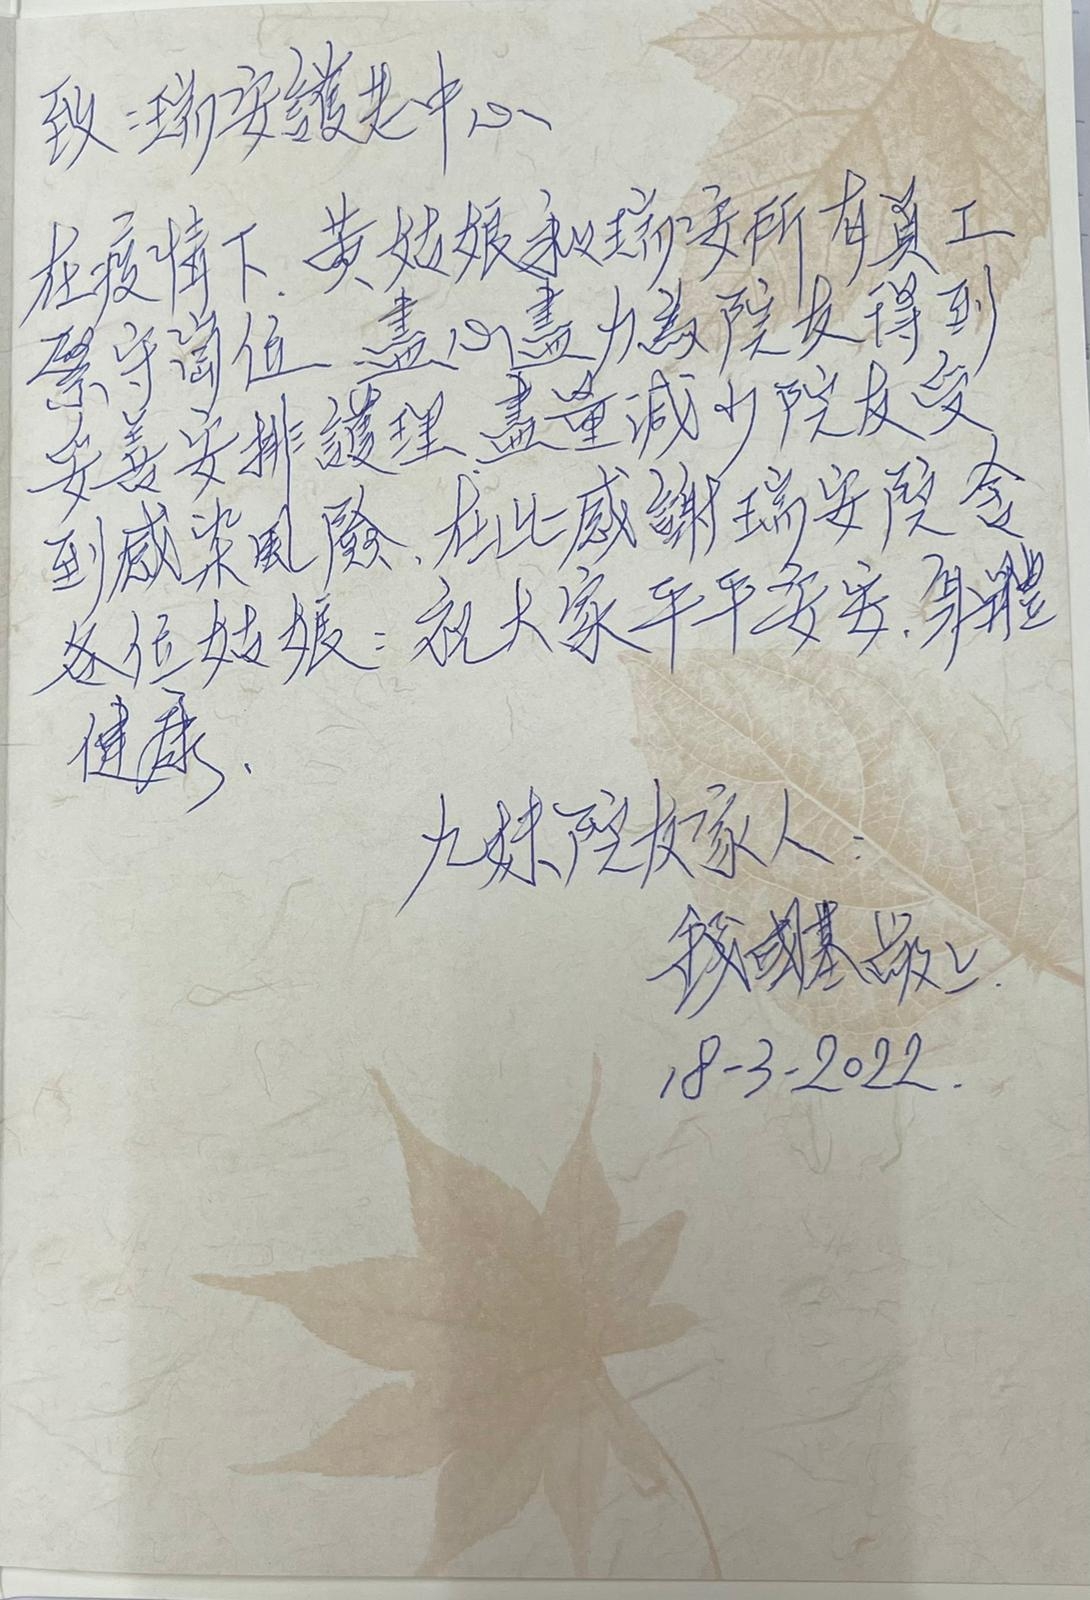 致：瑞安護老中心
在疫情下．黃姑娘和瑞安所有員工
緊守崗位 盡心盡力為院友得到
妥善安排護理 盡量減少院友受
到感染風險．在此感謝瑞安院舍
各位姑娘：祝大家平平安安．身體
健康．
九妹院友家人：
錢國基敬上．
18-3-2022.